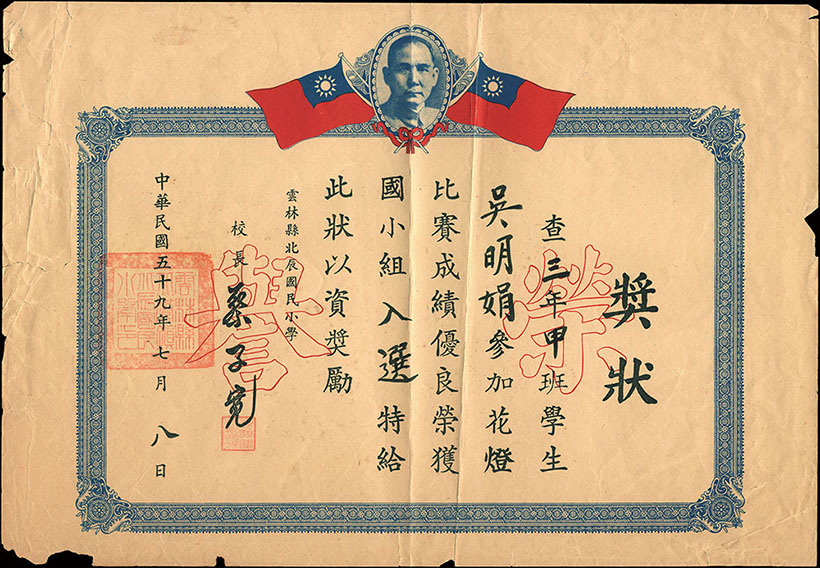 獎狀
查三年甲班學生
吳明娟參加花燈
比賽成績優良榮獲
國小組入選特給
此狀以資獎勵
雲林縣北辰國民小學
校長 蔡子寬
中華民國五十九年七月八日
榮譽